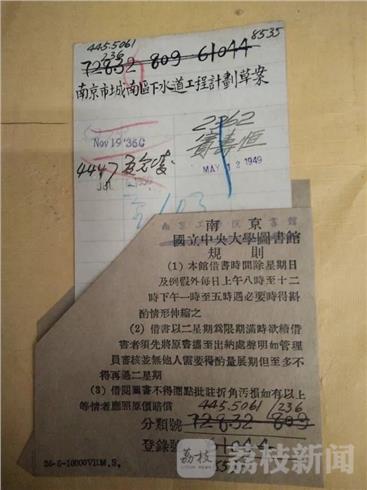 445.5061
236
8535
72832 809 61044
南京市城南區下水道工程計劃草案
2362
Nov 19 '36
MAY 12 1949
4447
南京
國立中央大學圖書館
規則
(1) 本館借書時間除星期日
及例假外每日上午八時至十二
時下午一時至五時遇必要時得斟
酌情形伸縮之
(2) 借書以二星期為限期滿時欲續借
者須先將原書簽至出納處聲明如管理
員審核並無他人需要得酌量展期但至多不
得再過二星期
(3) 借閱圖書不得圈點批註折角污損如有以上
等情者應照原價賠償
445.5061 236
分類號 72832 809
登錄號
荔枝
荔枝新闻